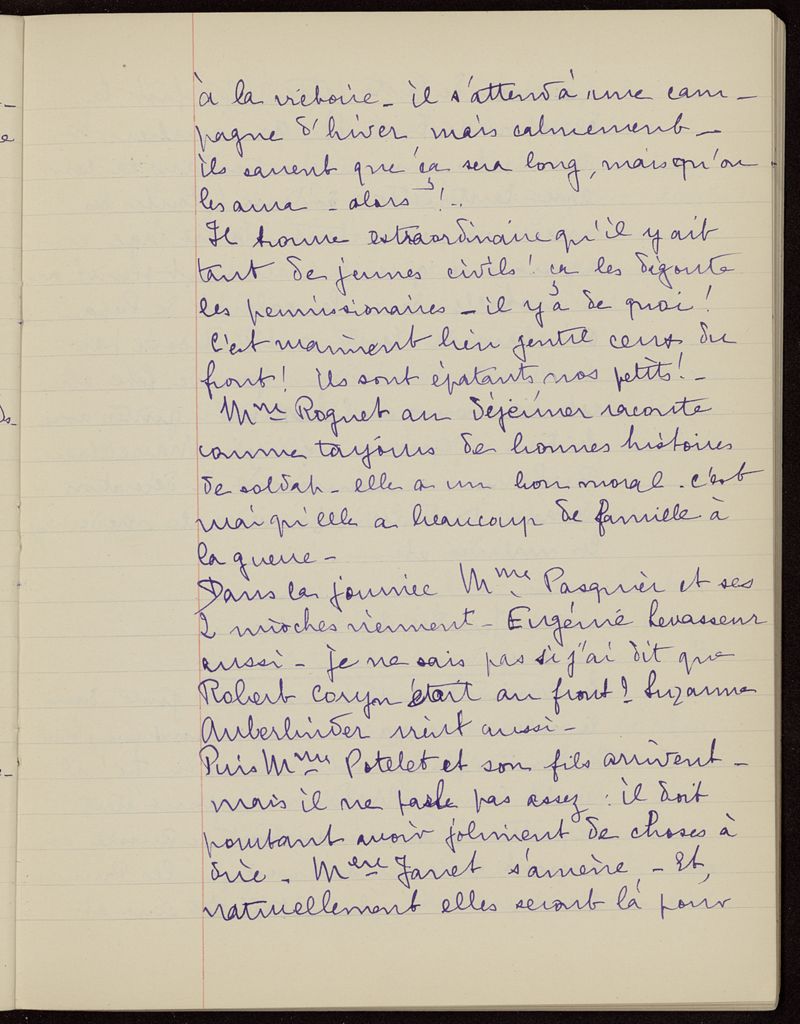 à la victoire - il s'attend à une cam-
pagne d'hiver mais calmement -
ils savent que ça sera long, mais qu'on
les aura - alors !..
Il trouve extraordinaire qu'il y ait
tant de jeunes civils ! ça les dégoute
les permissionaires - il y a de quoi !
C'est vraiment bien gentil ceux du
front ! Ils sont épatants nos petits ! -
Mme Roguet au déjeuner raconte
comme toujours de bonnes histoires
de soldats - elle a un bon moral. c'est
vrai qu'elle a beaucoup de famille à
la guerre -
Dans la journée Mme Pasquier et ses
2 mioches viennent - Eugénie Levasseur
aussi - je ne sais pas si j'ai dit que
Robert Coryn était au front ? Suzanne
vient aussi -
Puis Mme Potelet et son fils arrivent -
mais il ne parle pas assez : il doit
pourtant avoir joliment de choses à
dire. Mère Janet s'amène - Et,
naturellement elles seront là pour